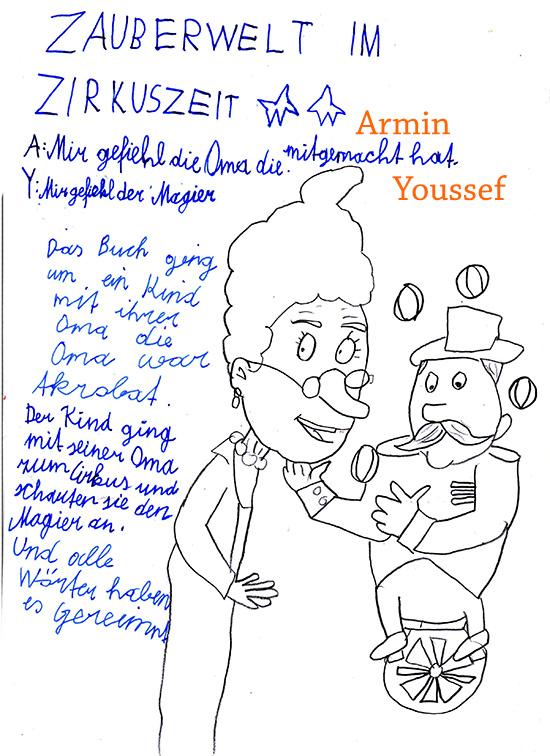 ZAUBERWELT IM
ZIRKUSZEIT
Armin
A: Mir gefiehl die Oma die mitgemacht hat.
Youssef
Y: Mir gefiehl der Magier
Das Buch ging
um ein Kind
mit ihrer
Oma die
Oma war
Akrobat.
Der Kind ging
mit seiner Oma
zum Cirkus und
schauten sie den
Magier an.
Und alle
Wörter haben
es gereimpt